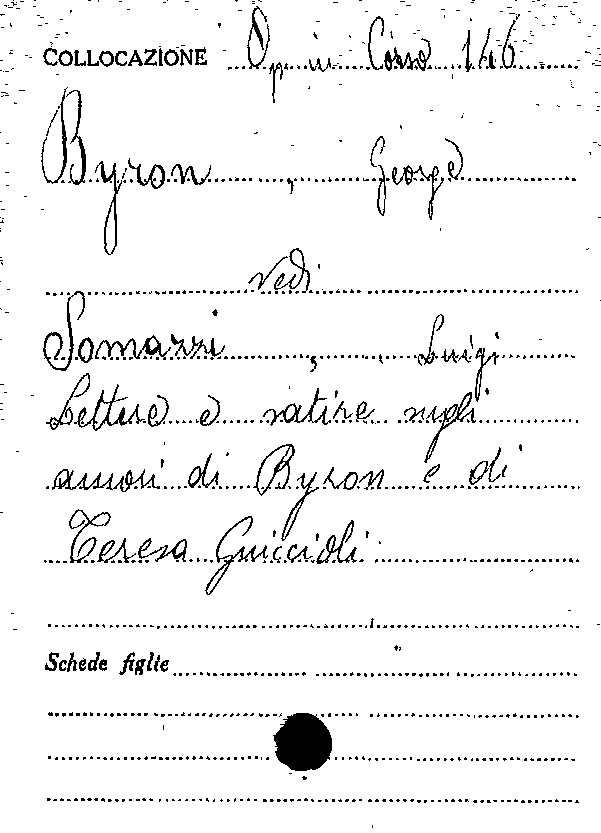 COLLOCAZIONE Op in Corso 146
Byron, George
vedi
Somazzi, Luigi
Lettere e satire sugli
amori di Byron e di
Teresa Guiccioli
Schede figlie